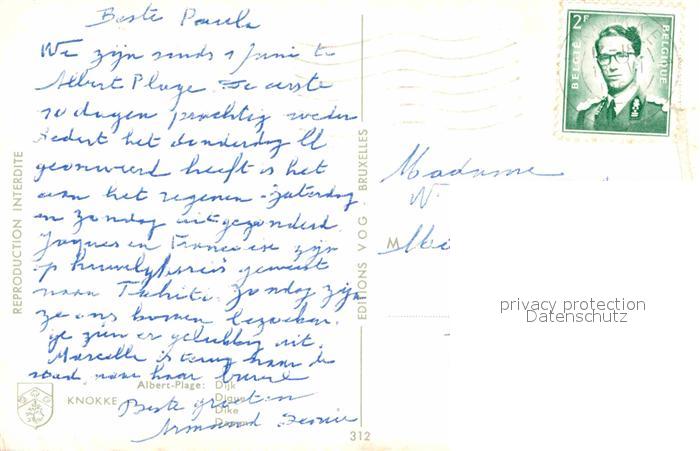 Beste Paula
We zijn sinds 1 Juni te
Albert Plage. De eerste
10 dagen prachtig weder
Sedert het donderdag ll
geonweerd heeft is het
aan het regenen - zaterdag
en zondag uitgezonderd.
Jaques en Francoise zijn
op huwelijksreis geweest
naar Tahiti. Zondag zijn
ze ons komen bezoeken.
Ze zien er gelukkig uit.
Marcelle is terug naar de
stad, naar haar
Beste groeten
Armand
KNOKKE
Albert-Plage: Dijk
Digue
Dike
312
REPRODUCTION INTERDITE
EDITIONS VOG - BRUXELLES
2F
BELGIË
BELGIQUE
Madame
W
M
privacy protection
Datenschutz